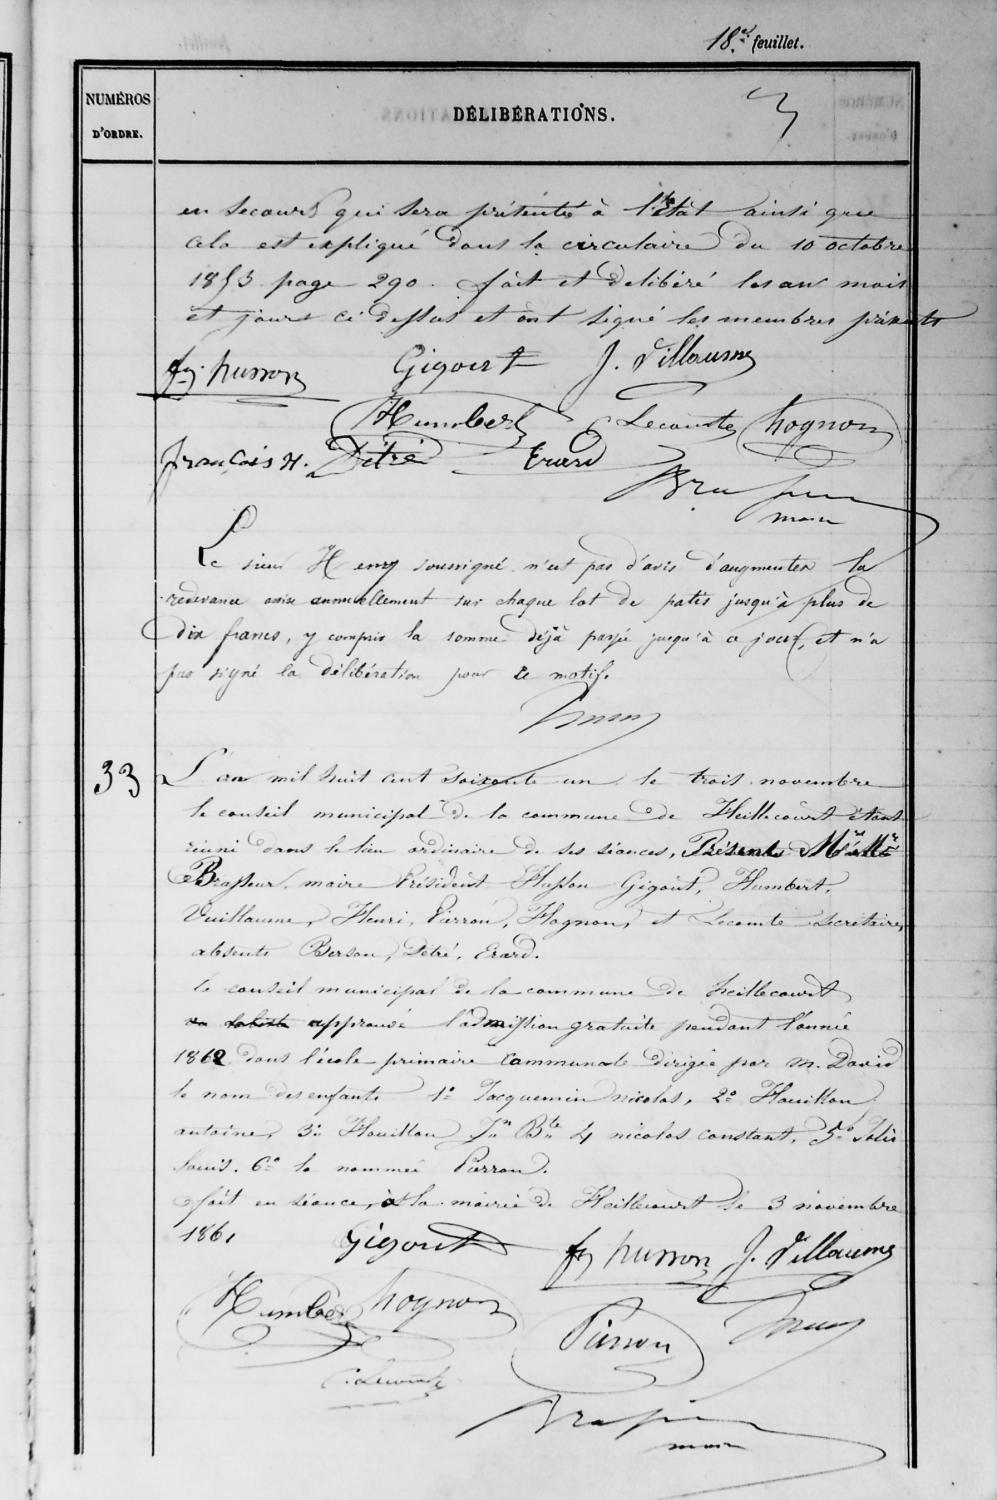 18e feuillet.
NUMÉROS
D'ORDRE.
DÉLIBÉRATIONS.
en secours qui sera présentée à l'état ainsi que
cela est expliqué dans la circulaire du 10 octobre
1853 page 290. fait et délibéré les an mois
et jour ci dessus et ont signé les membres présents
fs husson Gigout J. Villaume
Humbert Lecomte hognon
françois H. Détré Erard
Brasseur
maire
Le sieur Henry soussigné n'est pas d'avis d'augmenter la
redevance mise annuellement sur chaque lot de patis jusqu'à plus de
dix francs, y compris la somme déjà payée jusqu'à ce jour, et n'a
pas signé la délibération pour ce motif.
Henry
33
L'an mil huit cent soixante un le trois novembre
le conseil municipal de la commune de Heillecourt étant
réuni dans le lieu ordinaire de ses séances, Présents
Brasseur maire Président Husson Gigout, Humbert,
Vuillaume, Henri, Pierron, Hognon, et Lecomte secrétaire,
absents Berson, Détré, Erard.
le conseil municipal de la commune de heillecourt
approuve l'admission gratuite pendant l'année
1862 dans l'école primaire communale dirigée par m. David
le nom des enfants 1° Jacquemin nicolas, 2° Houillon
antoine, 3° Houillon Jn Bte 4 nicolas constant, 5°
Louis. 6° le nommé Pierron.
fait en séance, à la mairie de Heillecourt le 3 novembre
1861
Gigout fs husson J. Villaume
Humbert hognon Pierron Henry
C. Lecomte
Brasseur
maire